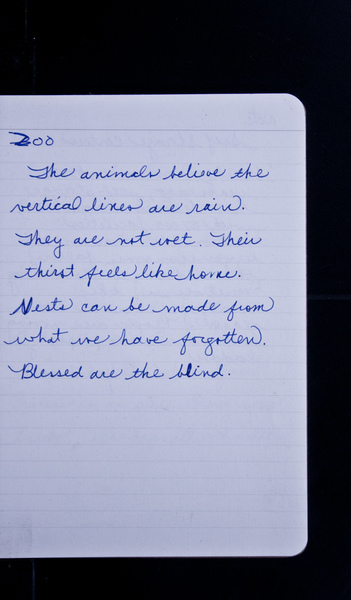 Zoo
The animals believe the
vertical lines are rain.
They are not wet. Their
thirst feels like home.
Nests can be made from
what we have forgotten.
Blessed are the blind.